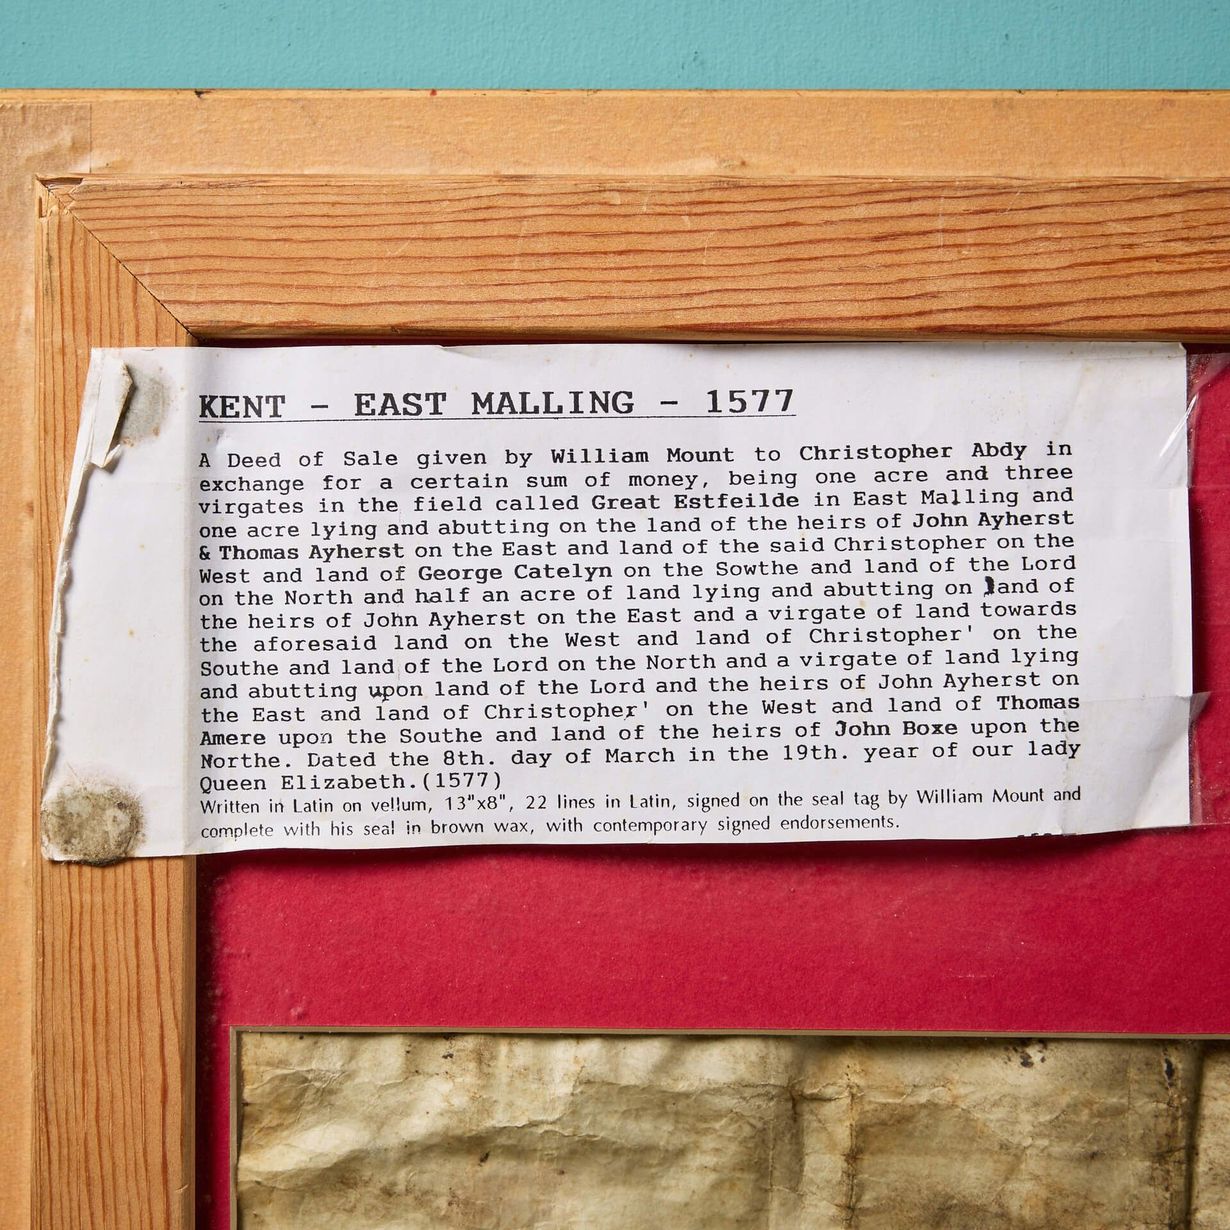 KENT - EAST MALLING - 1577
A Deed of Sale given by William Mount to Christopher Abdy in
exchange for a certain sum of money, being one acre and three
virgates in the field called Great Estfeilde in East Malling and
one acre lying and abutting on the land of the heirs of John Ayherst
& Thomas Ayherst on the East and land of the said Christopher on the
West and land of George Catelyn on the Sowthe and land of the Lord
on the North and half an acre of land lying and abutting on land of
the heirs of John Ayherst on the East and a virgate of land towards
the aforesaid land on the West and land of Christopher' on the
Southe and land of the Lord on the North and a virgate of land lying
and abutting upon land of the Lord and the heirs of John Ayherst on
the East and land of Christopher' on the West and land of Thomas
Amere upon the Southe and land of the heirs of John Boxe upon the
Northe. Dated the 8th. day of March in the 19th. year of our lady
Queen Elizabeth.(1577)
Written in Latin on vellum, 13"x8", 22 lines in Latin, signed on the seal tag by William Mount and
complete with his seal in brown wax, with contemporary signed endorsements.